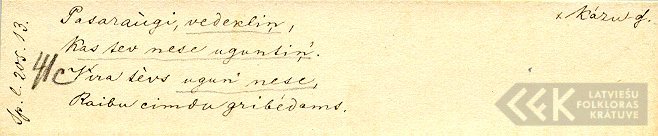 Pasaraŭgi, vedekliņ,
Kas tev nese uguntiņ.
Vīra tēvs ugun' nese,
Raibu cimdu gribēdams.
Kāzu g.
Sp. l. 205. 13.
41c
LATVIEŠU
FOLKLORAS
KRĀTUVE